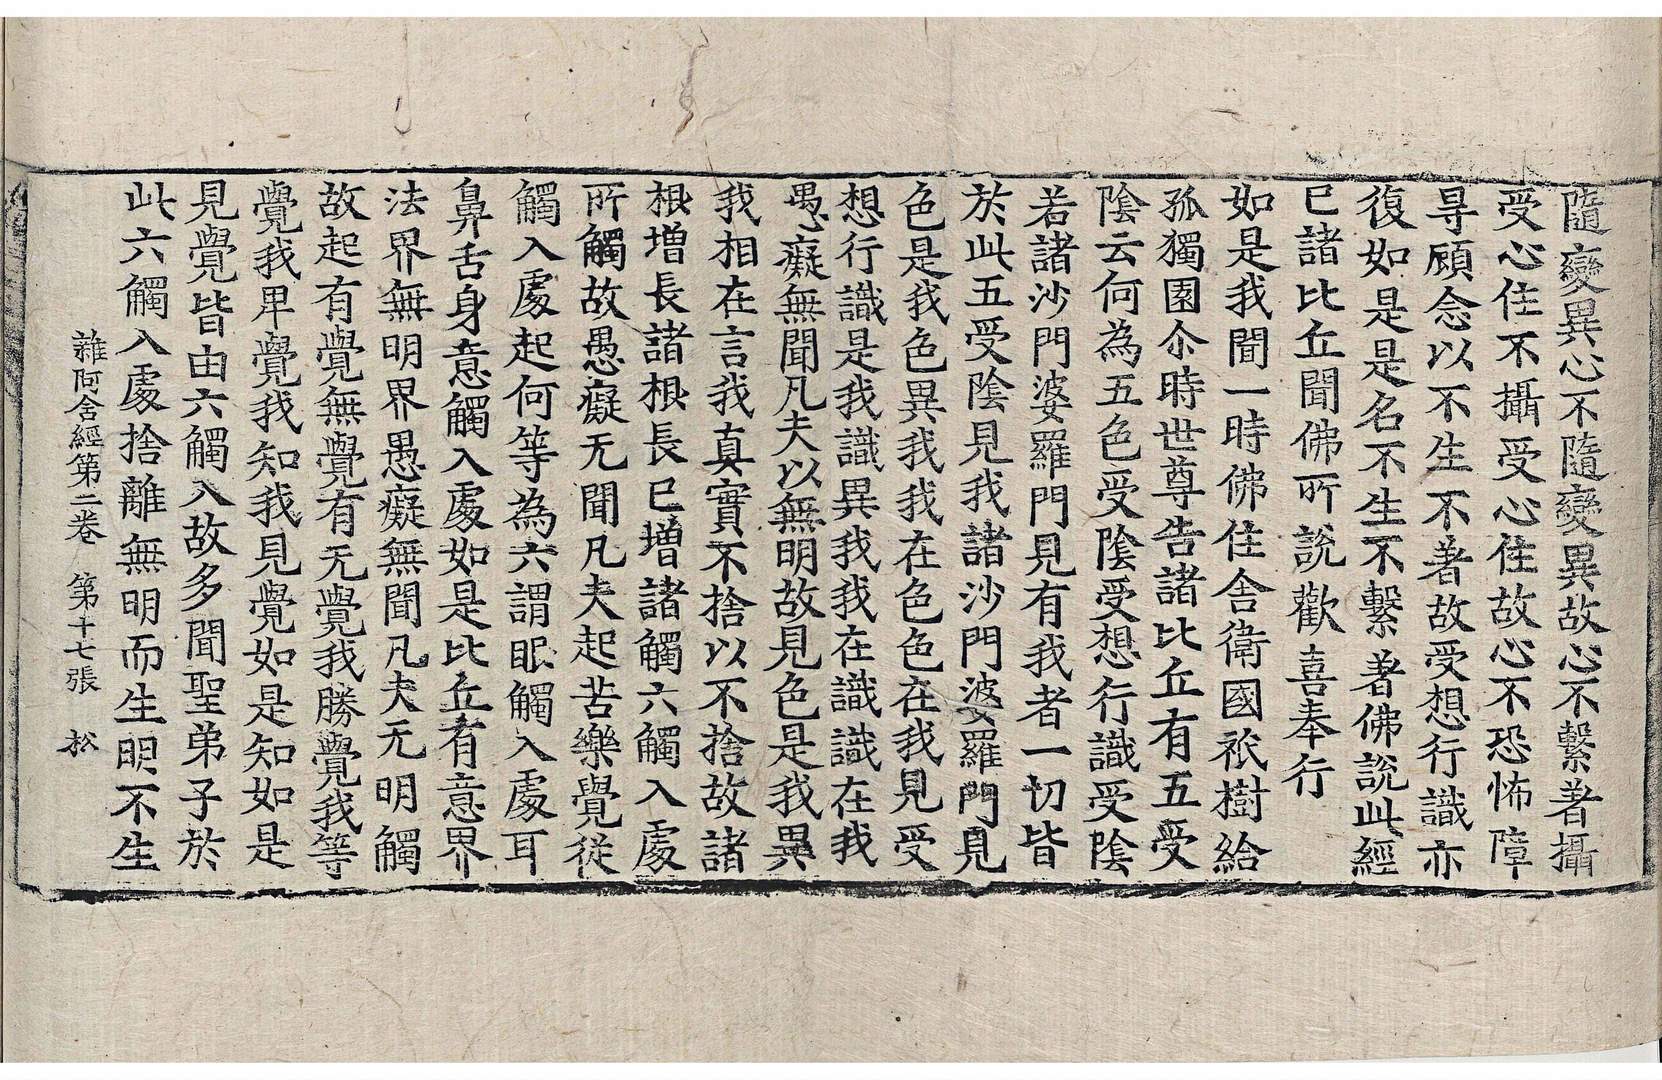 隨變異心不隨變異故心不繫著攝
受心住不攝受心住故心不恐怖障
㝵顧念以不生不著故受想行識亦
復如是是名不生不繫著佛說此經
已諸比丘聞佛所說歡喜奉行
如是我聞一時佛住舍衛國祇樹給
孤獨園尒時世尊告諸比丘有五受
陰云何為五色受陰受想行識受陰
若諸沙門婆羅門見有我者一切皆
於此五受陰見我諸沙門婆羅門見
色是我色異我我在色色在我見受
想行識是我識異我我在識識在我
愚癡無聞凡夫以無明故見色是我異
我相在言我真實不捨以不捨故諸
根增長諸根長已增諸觸六觸入處
所觸故愚癡无聞凡夫起苦樂覺從
觸入處起何等為六謂眼觸入處耳
鼻舌身意觸入處如是比丘有意界
法界無明界愚癡無聞凡夫无明觸
故起有覺無覺有无覺我勝覺我等
覺我卑覺我知我見覺如是知如是
見覺皆由六觸入故多聞聖弟子於
此六觸入處捨離無明而生明不生
雜阿含經第二卷 第十七張 松